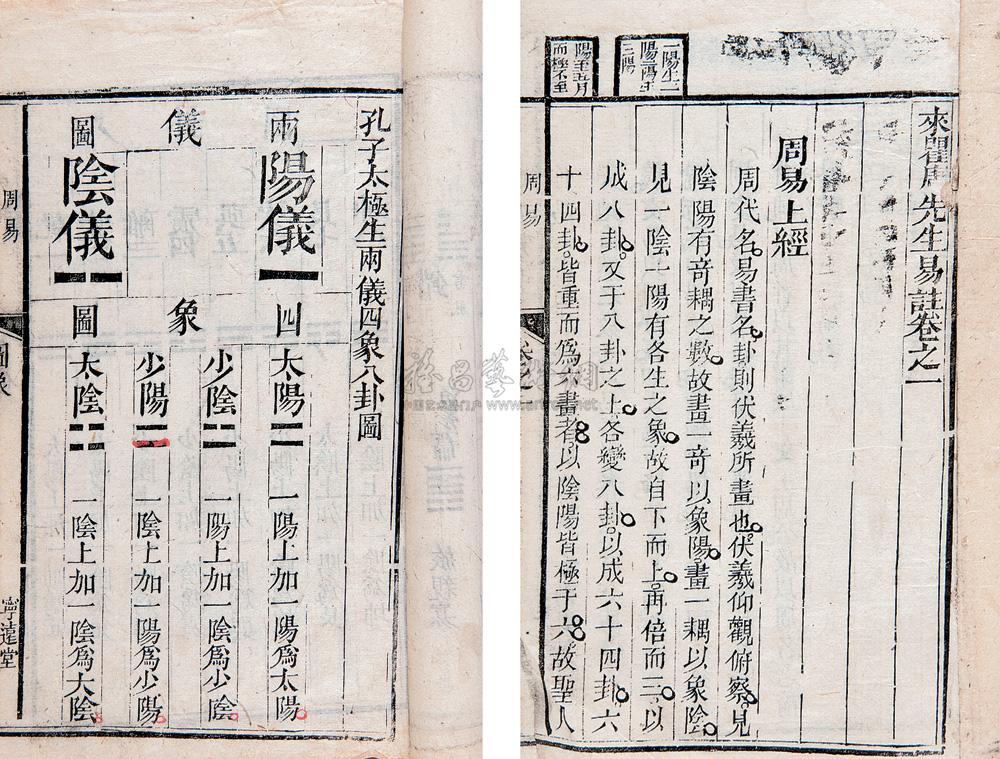 來瞿唐先生易註卷之一
周易上經
周代名易書名卦則伏羲所畫也伏羲仰觀俯察見
陰陽有奇耦之數故畫一奇以象陽畫一耦以象陰
見一陰一陽有各生之象故自下而上再倍而三以
成八卦又于八卦之上各變八卦以成六十四卦六
十四卦皆重而為六畫者以陰陽皆極于六故聖人
一陽生二
陽二陽生
三陽
陽至五月
而極不至
周易
孔子太極生兩儀四象八卦圖
兩儀圖
陽儀
陰儀
四象圖
太陽 一陽上加一陽為太陽
少陰 一陽上加一陰為少陰
少陽 一陰上加一陽為少陽
太陰 一陰上加一陰為大陰
周易
圖象
寧遠堂